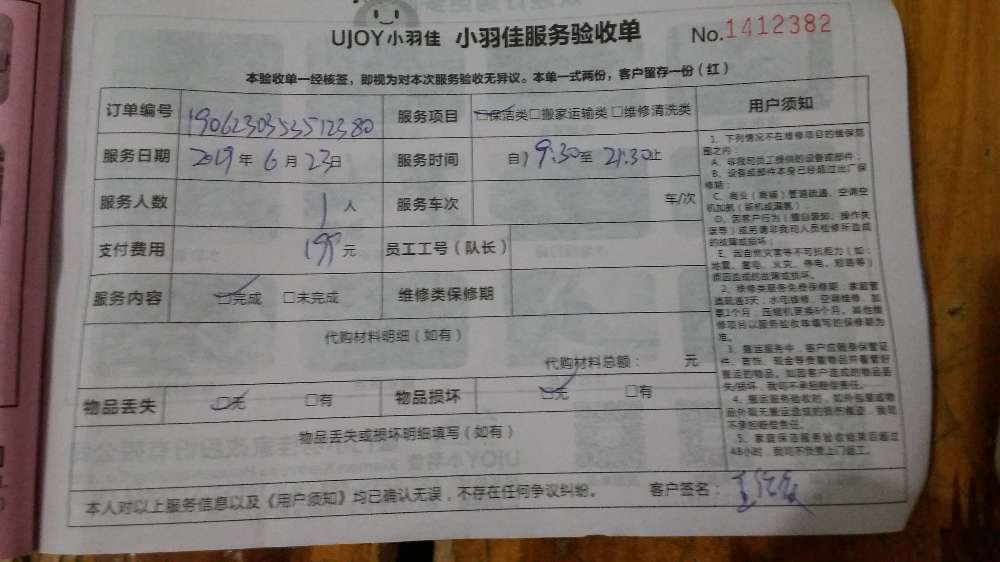 UJOY小羽佳 小羽佳服务验收单 No.1412382
本验收单一经核签，即视为对本次服务验收无异议。本单一式两份，客户留存一份（红）
订单编号 1906230353512380 服务项目 □保洁类□搬家运输类 □维修清洗类 用户须知
服务日期 2019年 6月 23日 服务时间 自 19:30至 21:30止
服务人数 1人 服务车次 车/次
支付费用 199元 员工工号（队长）
服务内容 □完成 □未完成 维修类保修期
代购材料明细（如有）
代购材料总额： 元
物品丢失 □无 □有 物品损坏 □无 □有
物品丢失或损坏明细填写（如有）
本人对以上服务信息以及《用户须知》均已确认无误，不存在任何争议纠纷。 客户签名：
1、下列情况不在维修项目的维保范
围之内：
A、非我司员工提供的设备或部件；
B、设备或部件本身已经超过出厂保
修期；
C、商业（商铺）管道疏通、空调空
机加氟（新机或漏氟）；
D、因客户行为（擅自装卸、操作失
误等）或另请非我司人员检修所造成
的故障或损坏；
E、因自然灾害等不可抗拒力（如：
地震、雷电、火灾、停电、短路等）
原因造成的故障或损坏。
2、维修类服务免费保修期：家庭管
道疏通3天；水电维修、空调维修、加
氟1个月；压缩机更换6个月。其他维
修项目以服务验收单填写的保修期为
准。
3、搬运服务中，客户应随身保管证
件、首饰、现金等贵重物品并看管好
搬运的物品。如因客户造成的物品丢
失/损坏，我司不承担赔偿责任。
4、搬运服务验收时，如外包装或物
品外观无搬运造成的损伤痕迹，我司
不承担赔偿责任。
5、家庭保洁服务验收结束后超过
48小时，我司不负责上门返工。